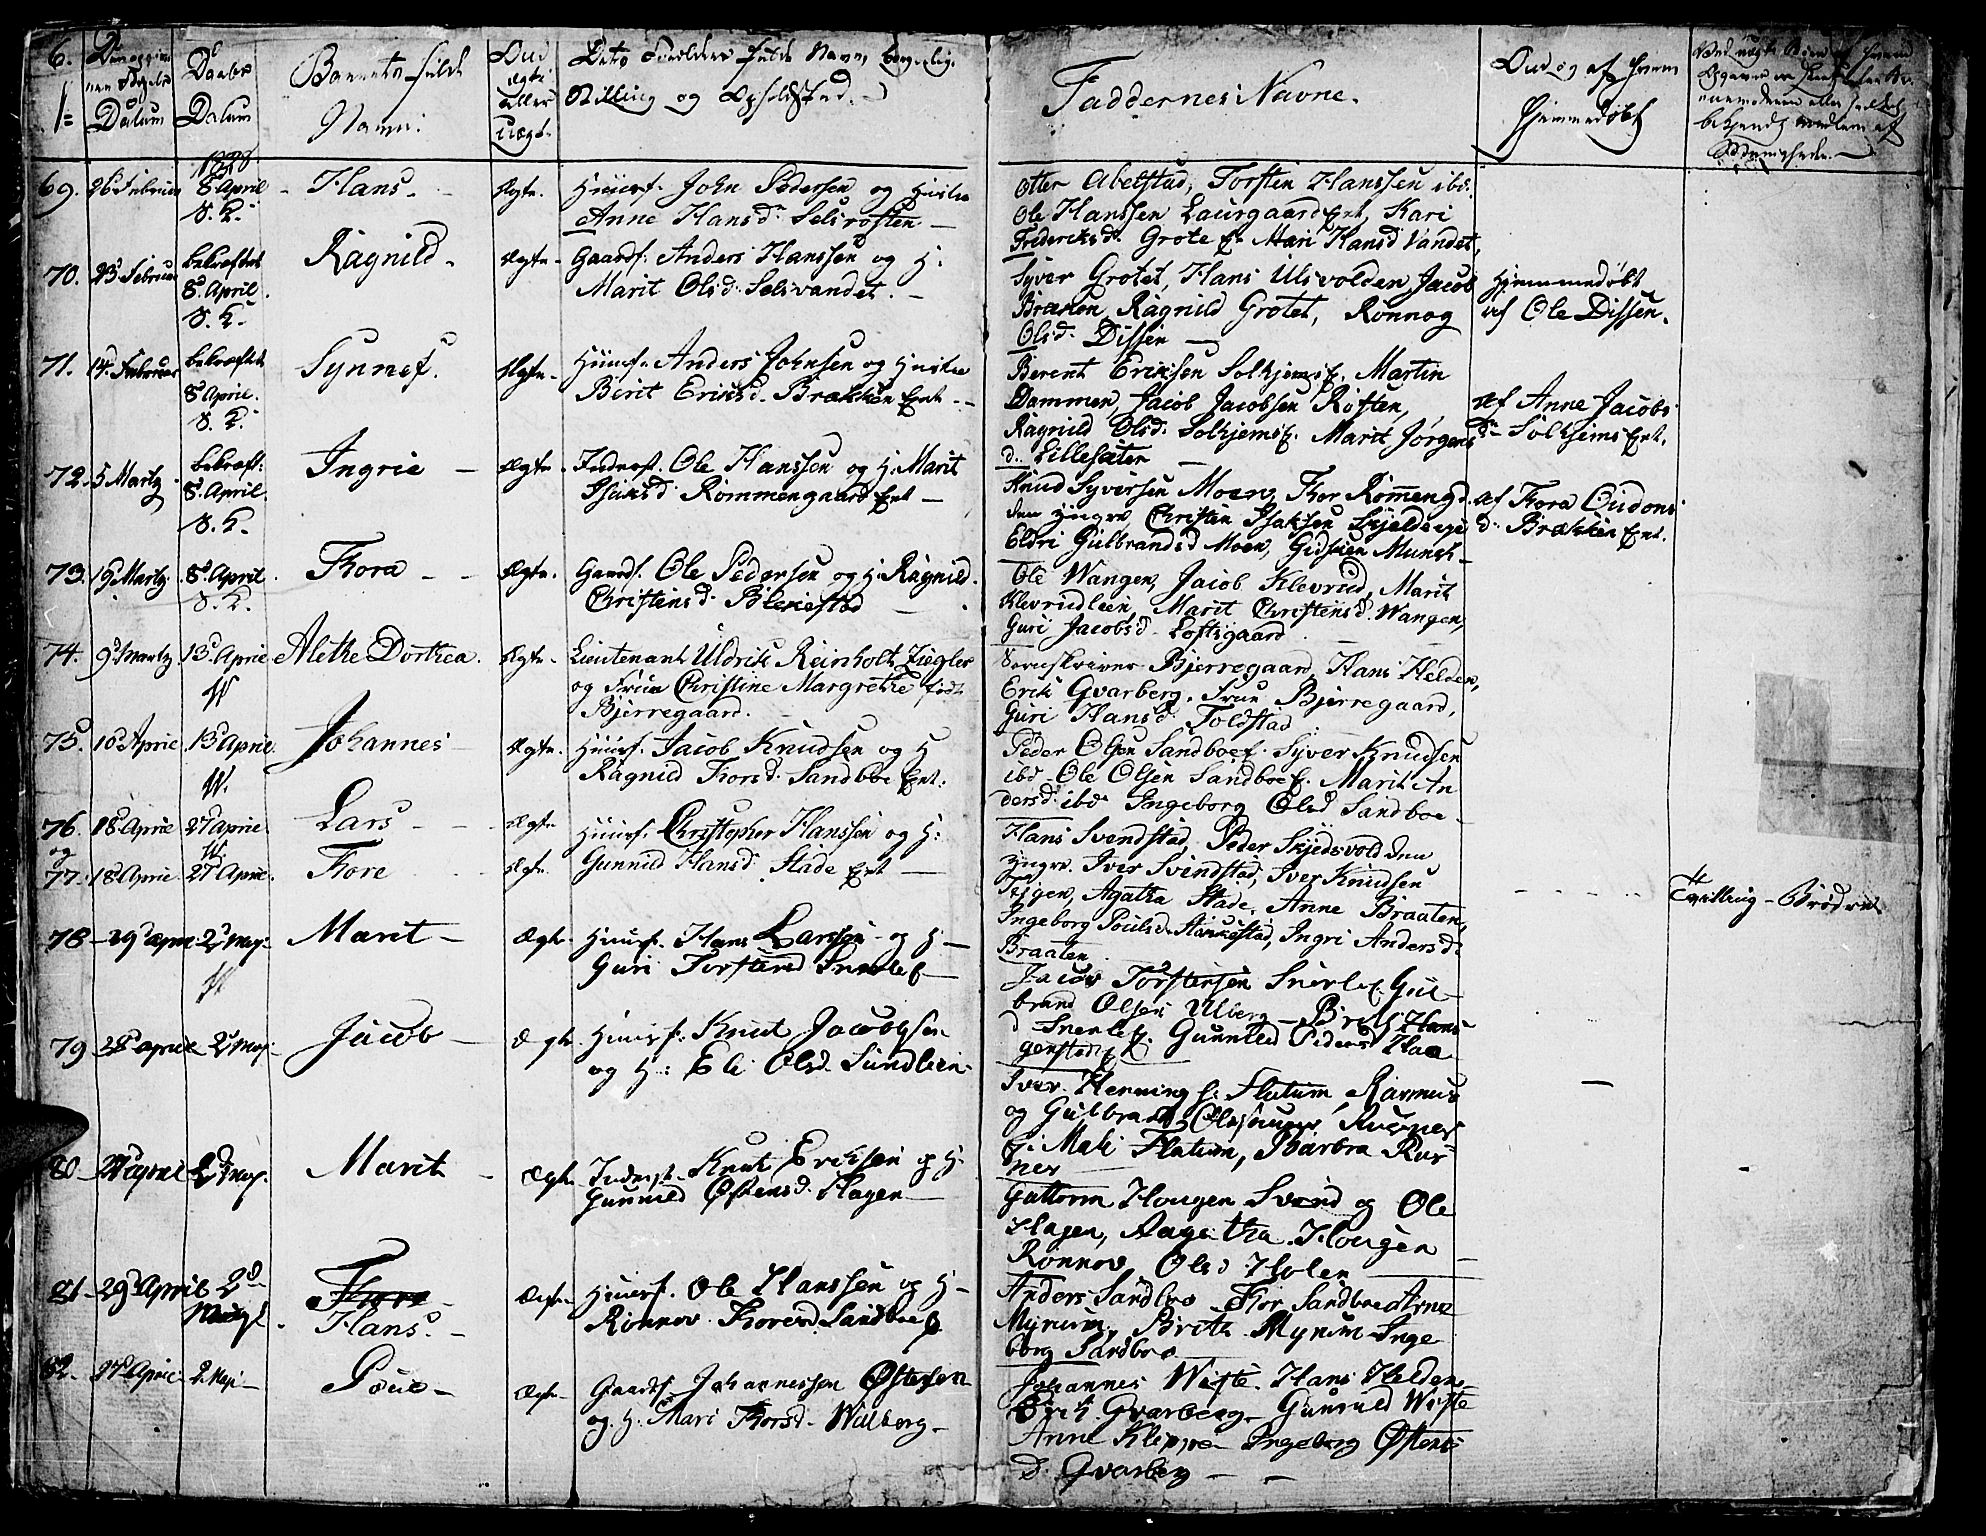 6.
Daabs
Datum
Barnets fulde
Navn.
Om
ægte
eller
uægte
Dets Forældres fulde Navn, borgerlig
Stilling og Opholdsted.
Faddernes Navne.
Om og af hvem
hjemmedøbt
1828
69. 26 Februar 8 April Hans Ægte Huusf. John Pedersen og Hustru
Anne Hansd. Selsrosten
Otter Abelstad, Torsten Hanssen ibd.
Ole Hanssen Laurgaard Ent, Kari
Frederiksd. Grote E. Mari Hansd Vandet
70. 23 Februar bekræftet
8 April.
S. K.
Ragnild Ægte Gaardf. Anders Hanssen og H:
Marit Olsd. Selsvandet.
Syver Grotet, Hans Ulsvolden Jacob
Bræken, Ragnild Grotet, Rønnog
Olsd. Dissen
Hjemmedøbt
af Ole Dissen.
71. 14 Februar bekræftet
8 April.
S. K.
Synnef. Ægte Huusf. Anders Johnsen og Hustru
Birit Eriksd. Brækken Ent
Berent Eriksen Solhjems E. Martin
Dammen, Jacob Jacobsen Rosten,
Ragnild Olsd. Solhjems E. Marit Jørgens
d. Lillesæter
af Anne Jacobs
d. Solhjems Ent.
72. 5 Martz bekræft:
8 April.
S. K.
Ingrie Ægte Inderst. Ole Hanssen og H. Marit
Isaksd. Rommengaard Ent
Knud Syversen Moen, Thor Rømmengd.
den yngre, Christen Isaksen Skjeldeeje
Eldri Gulbrandsd Moen, Gidsken Munch
af Thora Oudons
d. Brækken Ent.
73. 19 Martz 8 April.
S. K.
Thora Ægte Gaardf. Ole Pedersen og H. Ragnild
Christensd. Blekestad
Ole Wangen, Jacob Klevrud, Marit
Klevrudleien, Marit Christensd. Wangen,
Guri Jacobsd. Loftsgaard
74. 9 Martz 13 April Alethe Dorthea. Ægte Lieutenant Uldrik Reinholt Ziegler
og Frue Christine Margrethe født
Bjerregaard.
Sorenskriver Bjerregaard, Hans Helden,
Erik Gvarberg, Frue Bjerregaard,
Guri Hansd. Toldstad
75. 10 April 13 April. Johannes Ægte Huusf. Jacob Knudsen og H
Ragnild Thorsd. Sandboe Ent.
Peder Olsen Sandboe E. Syver Knudsen
ibd. Ole Olsen Sandboe E. Marit An
dersd. ibd. Ingeborg Olsd Sandboe
76. 18 April 27 April Lars Ægte Huusf. Christopher Hanssen og H:
og
77. 18 April 27 April. Thore Ægte Gunnild Hansd. Stade Ent
Hans Svendstad, Peder Skjedsvold den
yngre. Iver Svindstad, Iver Knudsen
Teigen, Agatha Stade, Anne Braaten,
Ingeborg Poulsd. Harrestad, Ingri Andersd.
Braaten
Tvilling-Brødre
78 29 april 2 May Marit Ægte Huusf. Hans Larssen og H
Guri Torstensd Snerle E
Jacob Torstensen Snerle E. Gul
brand Olsen Ulberg Brit Hans
d Snerle E. Gunnild Pedersd Haa
genstad E
79 28 april 2 May Jacob Ægte Huusf. Knut Jacobsen
og H: Eli Olsd. Sundleien
Iver Henning E. Flatum, Rasmus
og Gulbrand Rusnes
E: Mali Flatum, Barbra Rus
nes
80 27 april 2 May. Marit Ægte Inderst. Knut Eriksen og H.
Gunnild Østensd. Hagen
Guttorm Hougen Svend og Ole
Hagen, Aagetha Hougen
Rønnov Olsd Holen
81 29 April 2d
Thore
Hans. Ægte Huusf. Ole Hanssen og H
Rønnov Thoresd Sandboe E
Anders Sandboe Thor Sandboe Arne
Myrum, Brith Myrum Inge
borg Sandboe
82. 27 April 2 May Poul Ægte Gaardf. Johannessen Østensen
og H. Mari Thorsd. Wulberg
Johannes Wiste Hans Helden
Erik Gvarberg Gunnild Wiste
Anne Kleppe Ingeborg Østens
d. Gvarberg